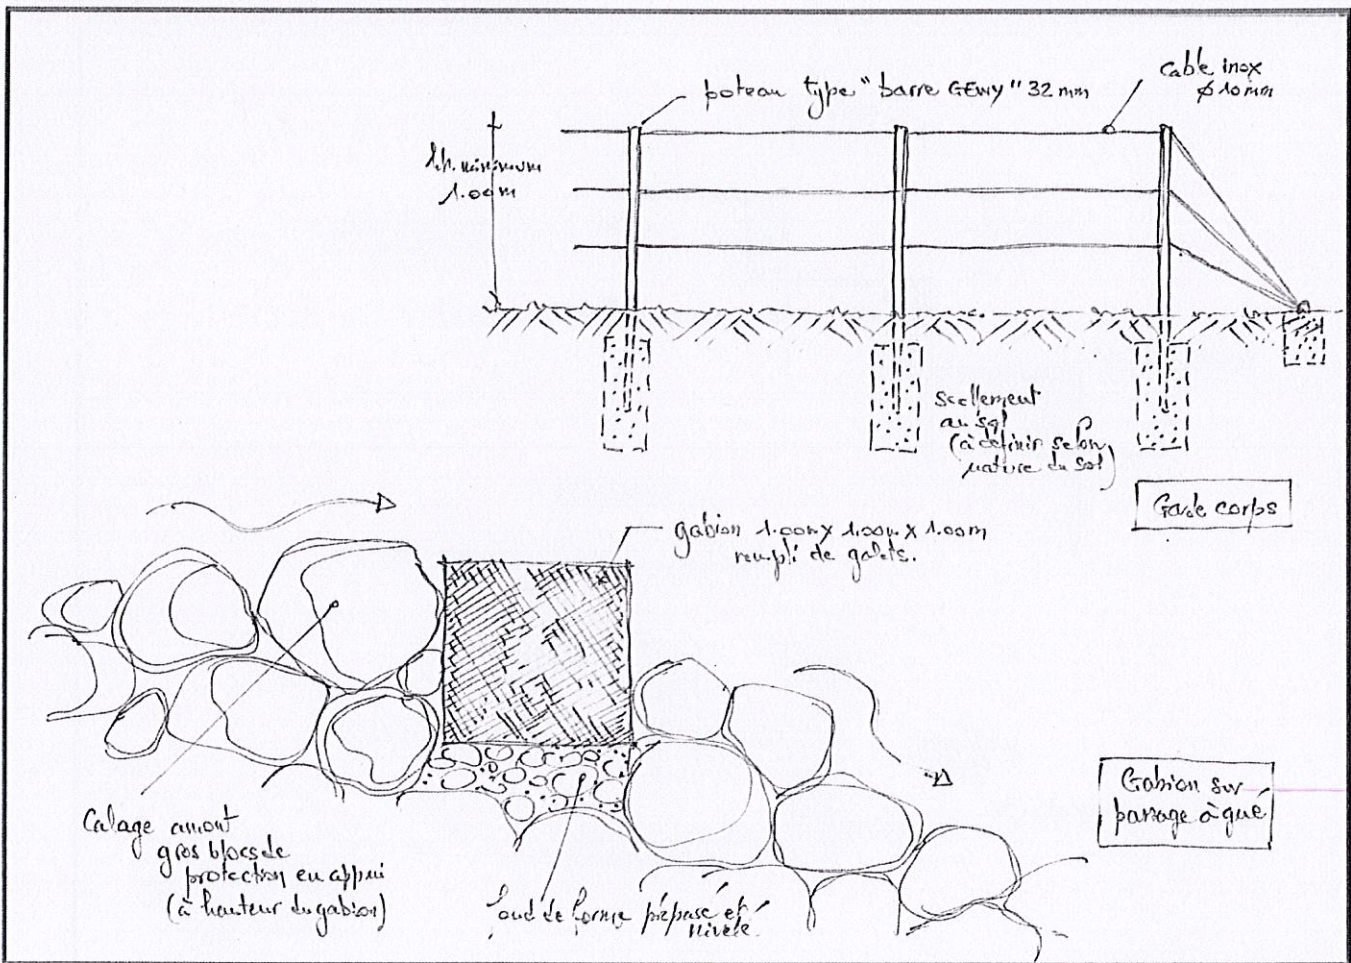 poteau type "barre GEWY" 32 mm
cable inox
ø 10mm
ht. minimum
1.00m
scellement
au sol
(à définir selon
nature du sol)
Garde corps
gabion 1.00m x 1.00m x 1.00m
rempli de galets.
Gabion sur
passage à gué
Calage amont
gros blocs de
protection en appui
(à hauteur du gabion)
fond de forme préparé et
nivelé.